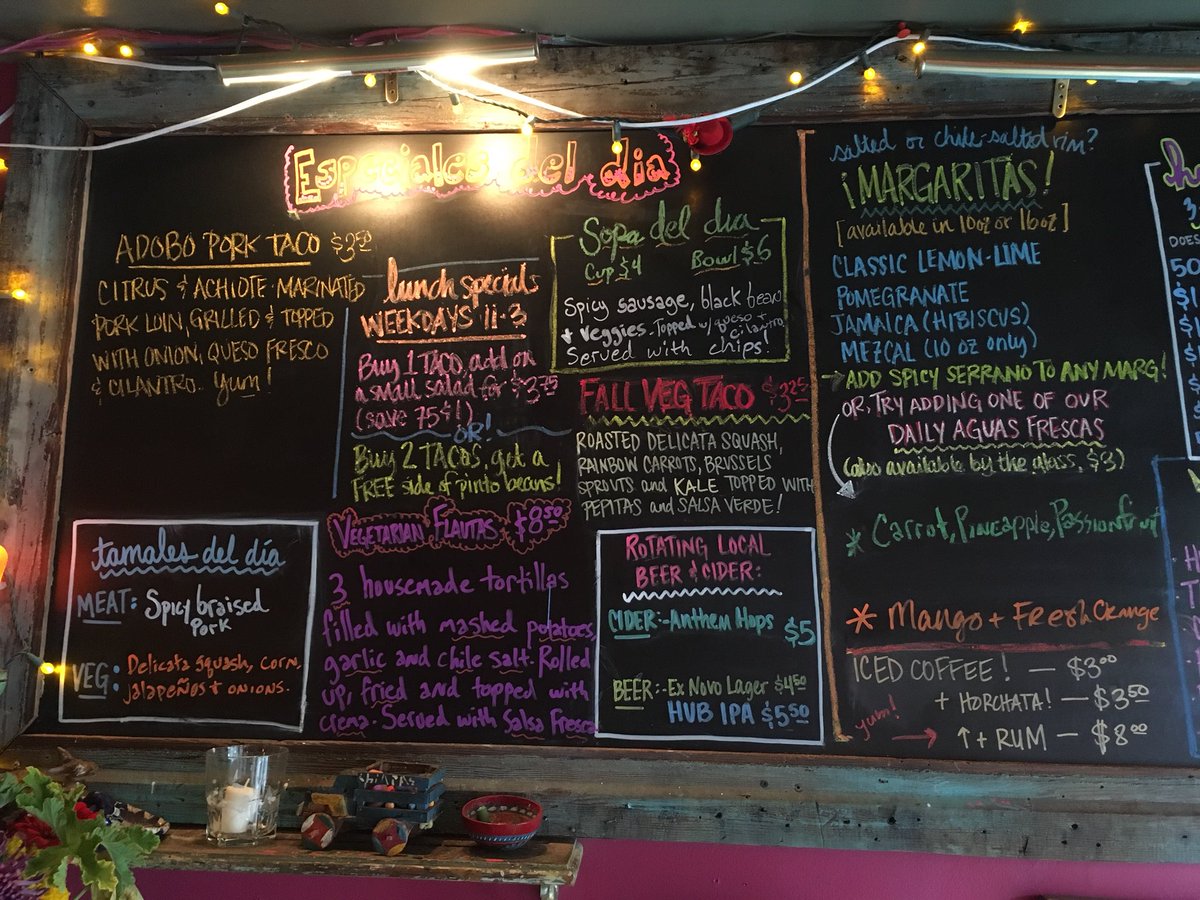 Especiales del dia
ADOBO PORK TACO $3.50
CITRUS & ACHIOTE-MARINATED
PORK LOIN, GRILLED & TOPPED
WITH ONION, QUESO FRESCO
& CILANTRO.. Yum!
lunch specials
WEEKDAYS 11-3
Buy 1 TACO, add on
a small salad for $3.75
(save 75¢!)
OR!
Buy 2 TACOS, get a
FREE side of pinto beans!
Sopa del dia
Cup $4 Bowl $6
Spicy sausage, black bean
+ veggies. Topped w/ queso +
cilantro
Served with chips!
FALL VEG TACO $3.25
ROASTED DELICATA SQUASH,
RAINBOW CARROTS, BRUSSELS
SPROUTS and KALE TOPPED WITH
PEPITAS and SALSA VERDE!
tamales del día
MEAT: Spicy braised
Pork
VEG: Delicata squash, corn,
jalapeños + onions.
VEGETARIAN FLAUTAS $8.50
3 housemade tortillas
filled with mashed potatoes,
garlic and chile salt. Rolled
up, fried and topped with
crema. Served with Salsa Fresca
ROTATING LOCAL
BEER & CIDER:
CIDER:-Anthem Hops $5
BEER:-Ex Novo Lager $4.50
HUB IPA $5.50
salted or chile-salted rim?
¡MARGARITAS!
[available in 10oz or 16oz]
CLASSIC LEMON-LIME
POMEGRANATE
JAMAICA (HIBISCUS)
MEZCAL (10 oz only)
→ADD SPICY SERRANO TO ANY MARG!
OR, TRY ADDING ONE OF OUR
DAILY AGUAS FRESCAS
(also available by the glass, $3)
* Carrot, Pineapple, Passionfruit
* Mango + Fresh Orange
ICED COFFEE! — $3.00
+ HORCHATA! — $3.50
yum! → ↑ + RUM — $8.00
CHIAPAS